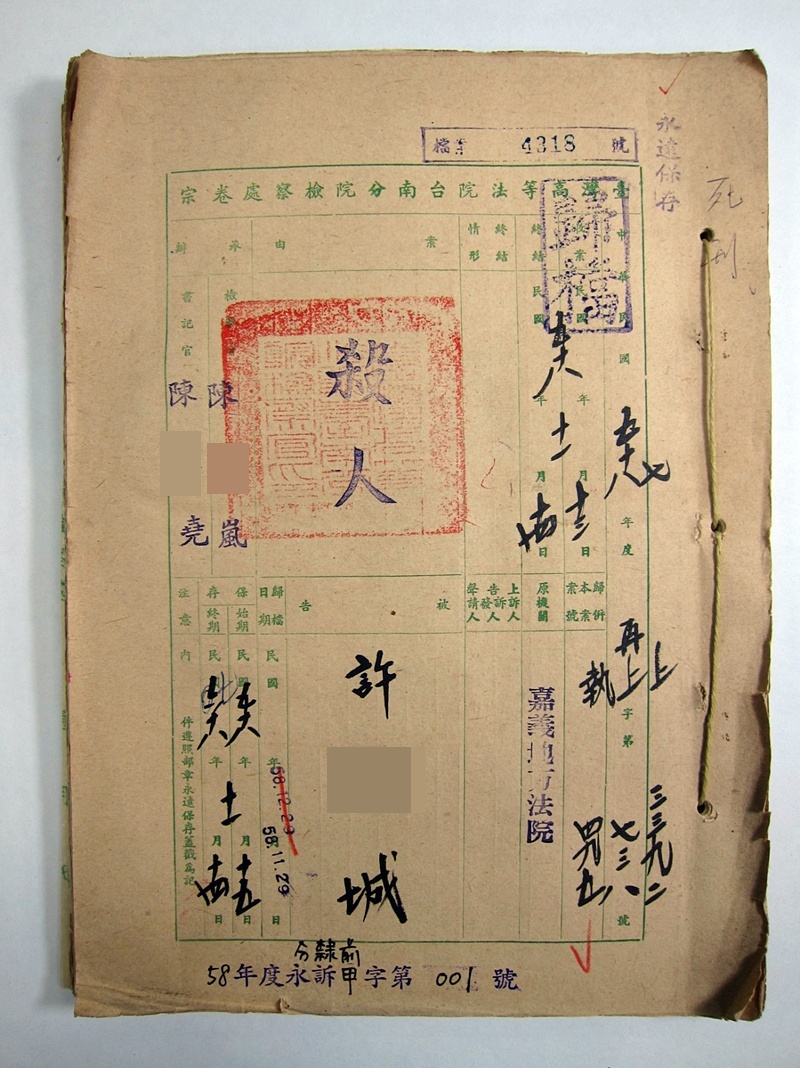 檔字 4318 號
永遠保存
死刑
歸檔
臺灣高等法院台南分院檢察處卷宗
中華民國
年度
再上
上
執
字第
三三九二
七三八
號
收案
民國
年
十一
月
十三
日
終結
民國
年
十一
月
日
歸併本案案號
原機關
嘉義地方法院
終結情形
上訴人
告訴人
告發人
聲請人
案由
殺人
被告
許 城
承辦
檢察官
陳 嵐
書記官
陳 堯
歸檔日期
民國
年
月
日
58.12.29
58.11.29
保存始期
民國
年
月
十五
日
保存終期
民國
年
十一
月
日
注意
內件遵照部章永遠保存蓋戳為記
前隸分
58年度永訴甲字第 001 號